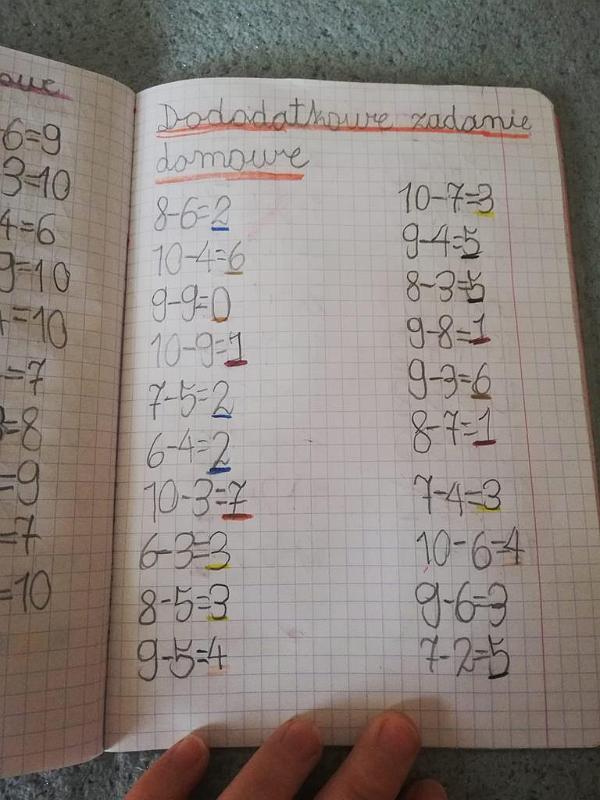 owe
6=9
3=10
4=6
9=10
+=10
-=7
3=8
=9
=7
=10
Dododatkowe zadanie
domowe
8-6=2
10-4=6
9-9=0
10-9=1
7-5=2
6-4=2
10-3=7
6-3=3
8-5=3
9-5=4
10-7=3
9-4=5
8-3=5
9-8=1
9-3=6
8-7=1
7-4=3
10-6=4
9-6=3
7-2=5